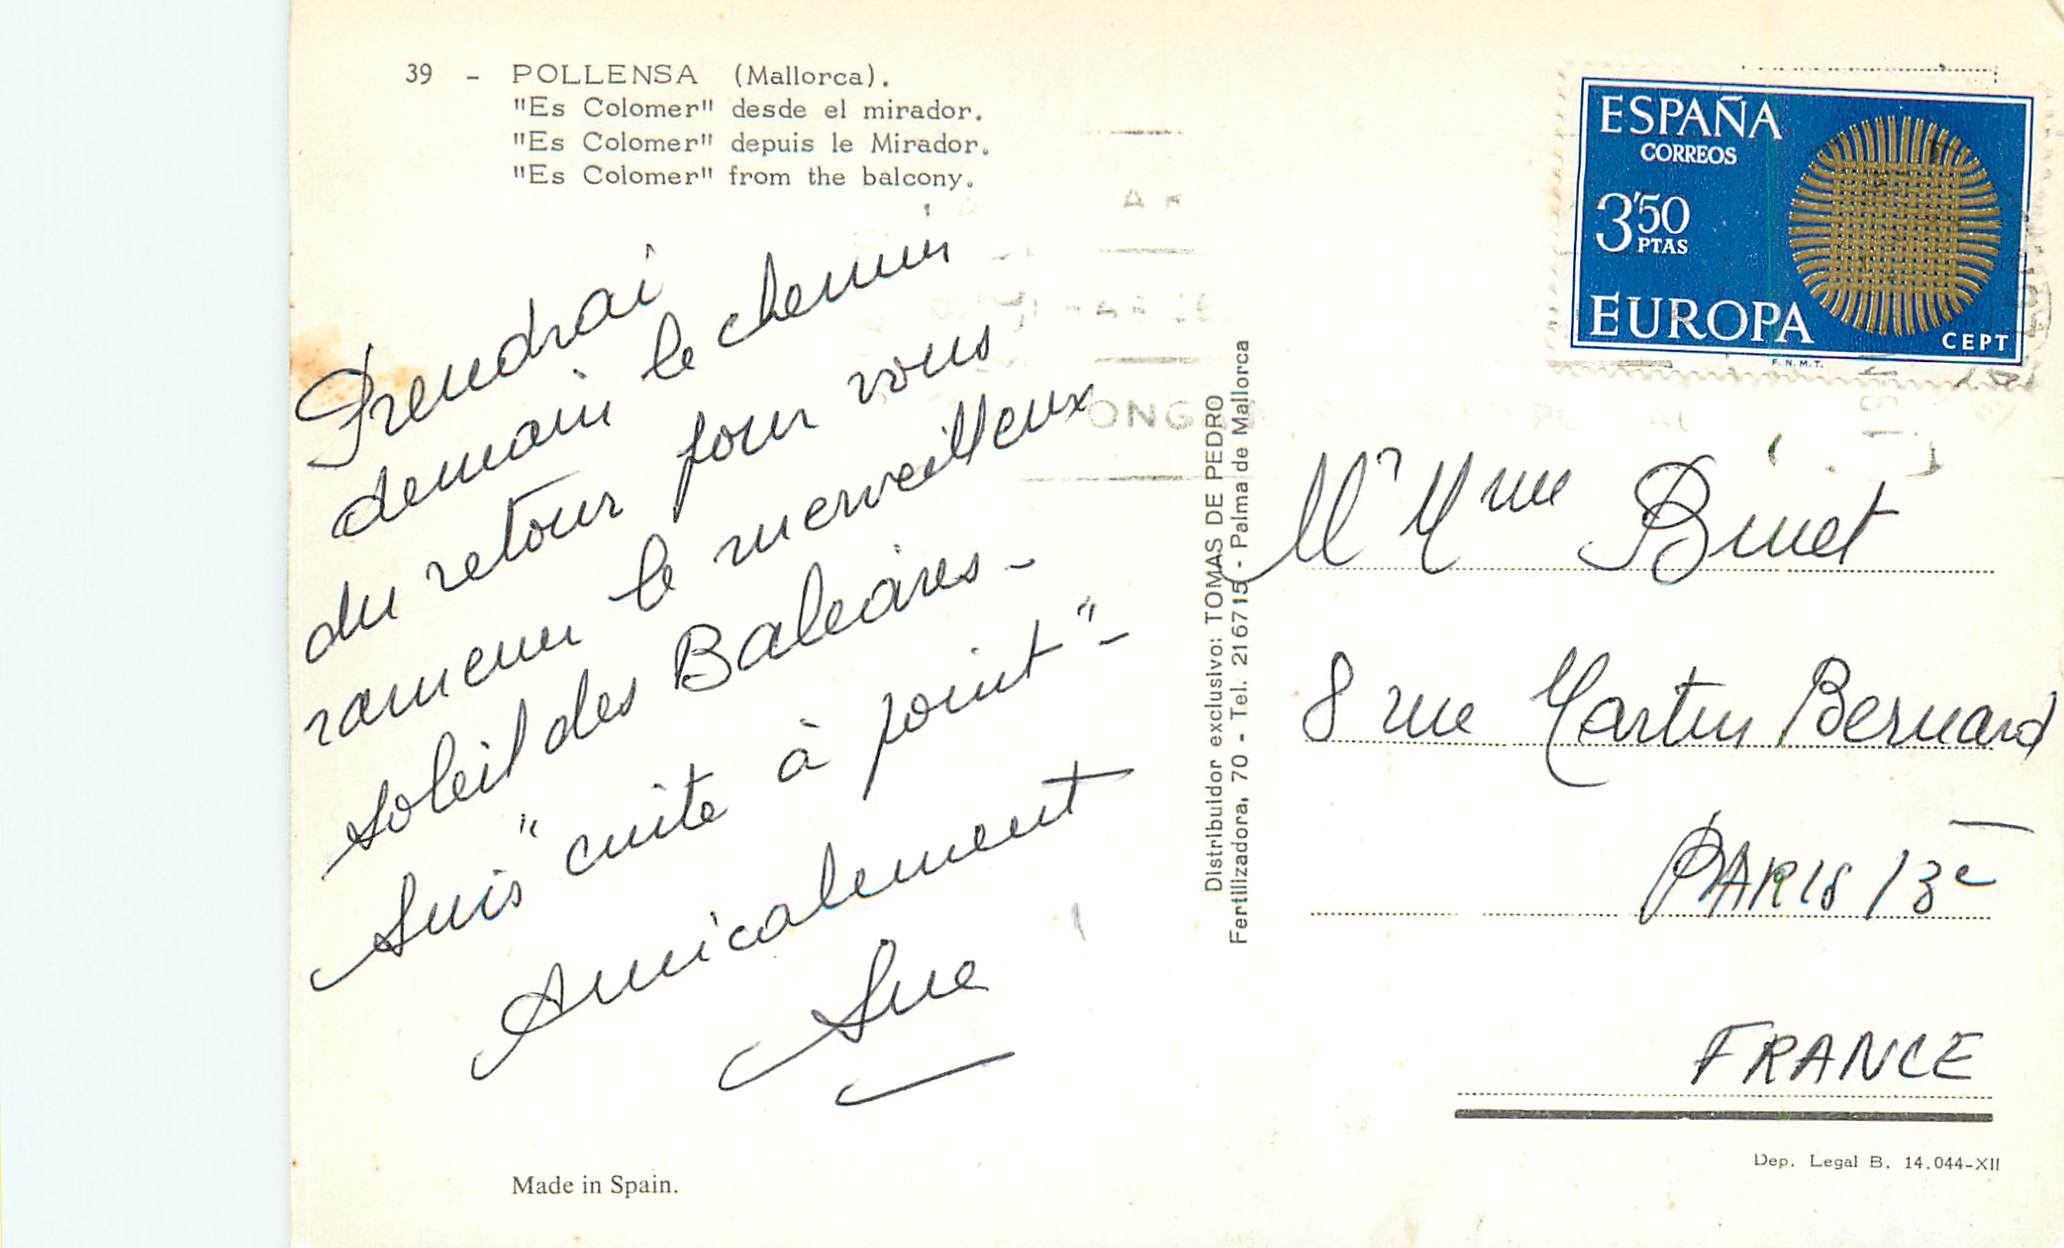 39 - POLLENSA (Mallorca).
"Es Colomer" desde el mirador.
"Es Colomer" depuis le Mirador.
"Es Colomer" from the balcony.
Prendrai
demain le chemin
du retour pour vous
ramener le merveilleux
soleil des Baléares -
Suis "cuite à point" -
Amicalement
Sue
Made in Spain.
Distribuidor exclusivo: TOMAS DE PEDRO
Fertilizadora, 70 - Tel. 216715 - Palma de Mallorca
ESPAÑA
CORREOS
3'50
PTAS
EUROPA
CEPT
F.N.M.T.
Mr Mme Binet
8 rue Martin Bernard
PARIS 13e
FRANCE
Dep. Legal B. 14.044-XII